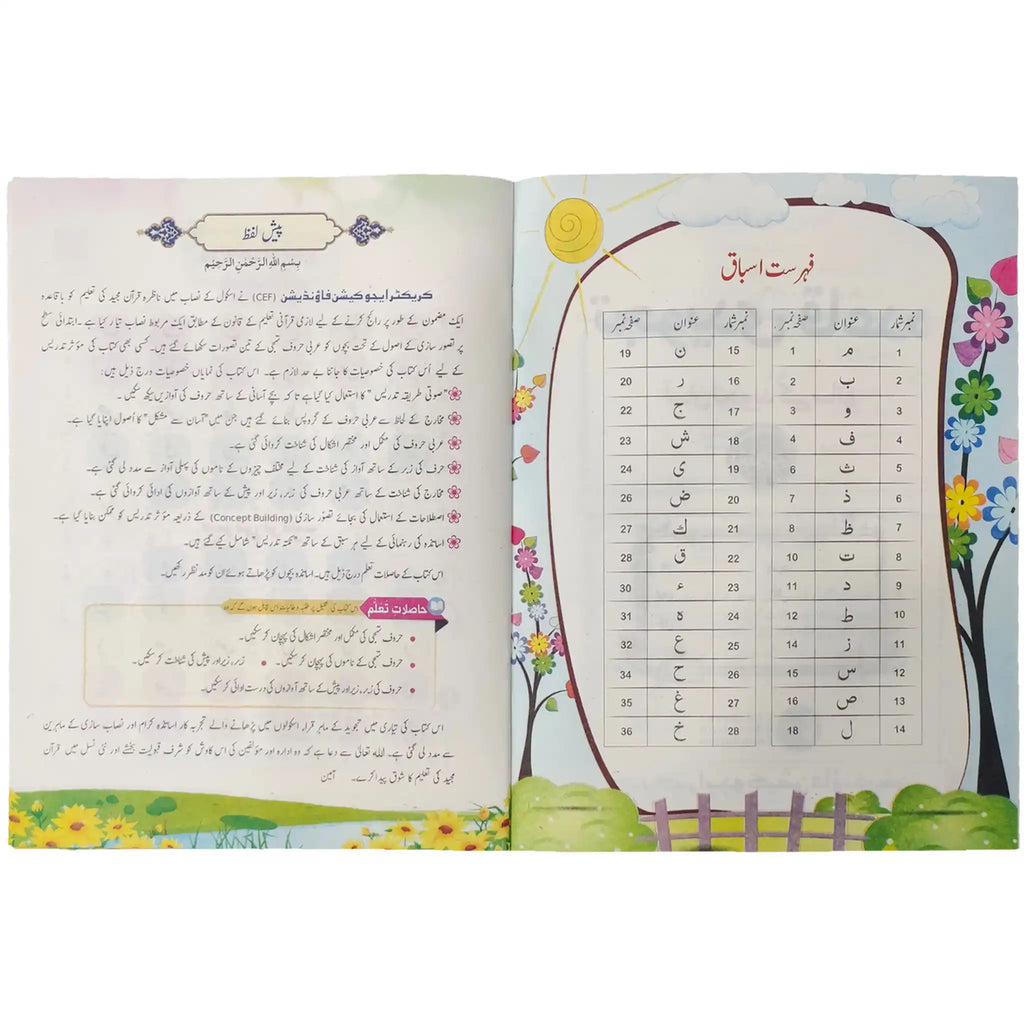 پیش لفظ
بِسْمِ اللهِ الرَّحْمٰنِ الرَّحِیْمِ
کریکٹر ایجوکیشن فاؤنڈیشن (CEF) نے اسکول کے نصاب میں ناظرہ قرآن مجید کی تعلیم کو باقاعدہ
ایک مضمون کے طور پر رائج کرنے کے لیے لازمی قرآنی تعلیم کے قانون کے مطابق ایک مربوط نصاب تیار کیا ہے۔ ابتدائی سطح
پر تصور سازی کے اصول کے تحت بچوں کو عربی حروف تہجی کے تین تصورات سکھائے گئے ہیں۔ کسی بھی کتاب کی مؤثر تدریس
کے لیے اُس کتاب کی خصوصیات کا جاننا بے حد لازم ہے۔ اس کتاب کی نمایاں خصوصیات درج ذیل ہیں:
"صوتی طریقہ تدریس" کا استعمال کیا گیا ہے تا کہ بچے آسانی کے ساتھ حروف کی آوازیں سیکھ سکیں۔
مخارج کے لحاظ سے عربی حروف کے گروپس بنائے گئے ہیں جن میں "آسان سے مشکل" کا اُصول اپنایا گیا ہے۔
عربی حروف کی مکمل اور مختصر اشکال کی شناخت کروائی گئی ہے۔
حرف کی زبر کے ساتھ آواز کی شناخت کے لیے مختلف چیزوں کے ناموں کی پہلی آواز سے مدد لی گئی ہے۔
مخارج کی شناخت کے ساتھ عربی حروف کی زبر، زیر اور پیش کے ساتھ آوازوں کی ادائی کروائی گئی ہے۔
اصطلاحات کے استعمال کی بجائے تصوّر سازی (Concept Building) کے ذریعہ مؤثر تدریس کو ممکن بنایا گیا ہے۔
اساتذہ کی رہنمائی کے لیے ہر سبق کے ساتھ "نکتہ تدریس" شامل کیے گئے ہیں۔
اس کتاب کے حاصلات تعلم درج ذیل ہیں۔ اساتذہ بچوں کو پڑھاتے ہوئے ان کو مد نظر رکھیں۔
حاصلاتِ تَعلّم اس کتاب کی تکمیل پر طلبہ و طالبات اس قابل ہوں گے کہ وہ
حروف تہجی کی مکمل اور مختصر اشکال کی پہچان کر سکیں۔
حروف تہجی کے ناموں کی پہچان کر سکیں۔ • زبر، زیر اور پیش کی شناخت کر سکیں۔
حروف کی زبر، زیر اور پیش کے ساتھ آوازوں کی درست ادائی کر سکیں۔
اس کتاب کی تیاری میں تجوید کے ماہر قراء، اسکولوں میں پڑھانے والے تجربہ کار اساتذہ کرام اور نصاب سازی کے ماہرین
سے مدد لی گئی ہے۔ اللہ تعالیٰ سے دعا ہے کہ وہ ادارہ اور مؤلفین کی اس کاوش کو شرف قبولیت بخشے اور نئی نسل میں قرآن
مجید کی تعلیم کا شوق پیدا کرے۔ آمین
فہرست اسباق
نمبر شمار عنوان صفحہ نمبر نمبر شمار عنوان صفحہ نمبر
1 م 1 15 ن 19
2 ب 2 16 ر 20
3 و 3 17 ج 22
4 ف 4 18 ش 23
5 ث 6 19 ی 24
6 ذ 7 20 ض 26
7 ظ 8 21 ك 27
8 ت 10 22 ق 28
9 د 11 23 ء 30
10 ط 12 24 ہ 31
11 ز 14 25 ع 32
12 س 15 26 ح 34
13 ص 16 27 غ 35
14 ل 18 28 خ 36